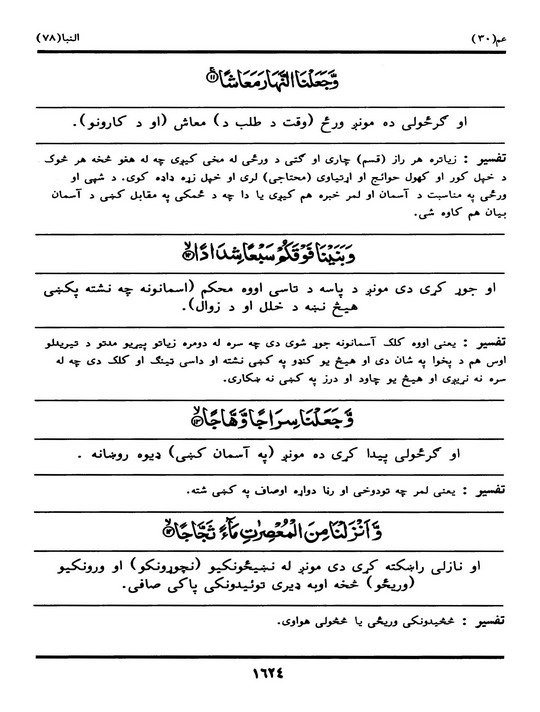 عم(٣٠) النبا(٧٨)
وَّجَعَلْنَا النَّهَارَ مَعَاشًا ۝١١
او ګرځولی ده مونږ ورځ (وقت د طلب د) معاش (او د کارونو).
تفسیر : زیاتره هر راز (قسم) چاری او ګتی د ورځی له مخی کیږی چه له هغو څخه هر څوک
د خپل کور او کهول حوائج او اړتیاوی (محتاجی) لری او خپل زړه ډاډه کوی. د شپی او
ورځی په مناسبت د آسمان او لمر خبره هم کیږی یا دا چه د ځمکی په مقابل کښی د آسمان
بیان هم کاوه شی.
وَّبَنَيْنَا فَوْقَكُمْ سَبْعًا شِدَادًا ۝١٢
او جوړ کړی دی مونږ د پاسه د تاسی اووه محکم (اسمانونه چه نشته پکښی
هیڅ نښه د خلل او د زوال).
تفسیر : یعنی اووه کلک آسمانونه جوړ شوی دی چه سره له دومره زیاتو پیړیو مدتو د تیریدلو
اوس هم د پخوا په شان دی او هیڅ یو کنډو په کښی نشته او داسی تینګ او کلک دی چه له
سره نه نړیږی او هیڅ یو چاود او درز په کښی نه ښکاری.
وَّجَعَلْنَا سِرَاجًا وَّهَّاجًا ۝١٣
او ګرځولی پیدا کړی ده مونږ (په آسمان کښی) ډیوه روښانه .
تفسیر : یعنی لمر چه تودوخی او رڼا دواړه اوصاف په کښی شته.
وَّاَنْزَلْنَا مِنَ الْمُعْصِرٰتِ مَآءً ثَجَّاجًا ۝١٤
او نازلی راښکته کړی دی مونږ له نښیځونکیو (نچوړونکو) او ورونکیو
(وریځو) څخه اوبه ډیری توئیدونکی پاکی صافی.
تفسیر : څڅیدونکی وریځی یا څڅولی هواوی.
١٦٢٤